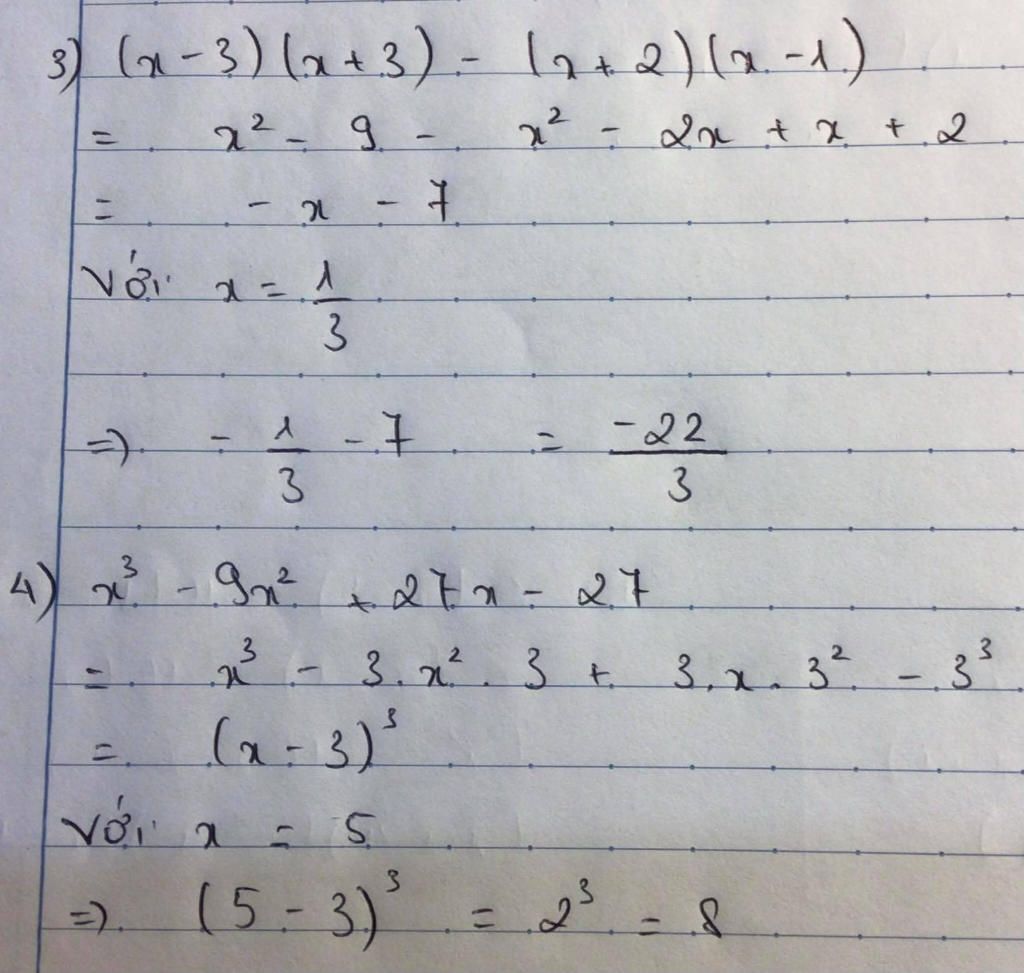 3) (x - 3)(x + 3) - (x + 2)(x - 1)
= x² - 9 - x² - 2x + x + 2
= - x - 7
Với x = 1/3
=> - 1/3 - 7 = -22/3
4) x³ - 9x² + 27x - 27
= x³ - 3.x².3 + 3.x.3² - 3³
= (x - 3)³
Với x = 5
=> (5 - 3)³ = 2³ = 8